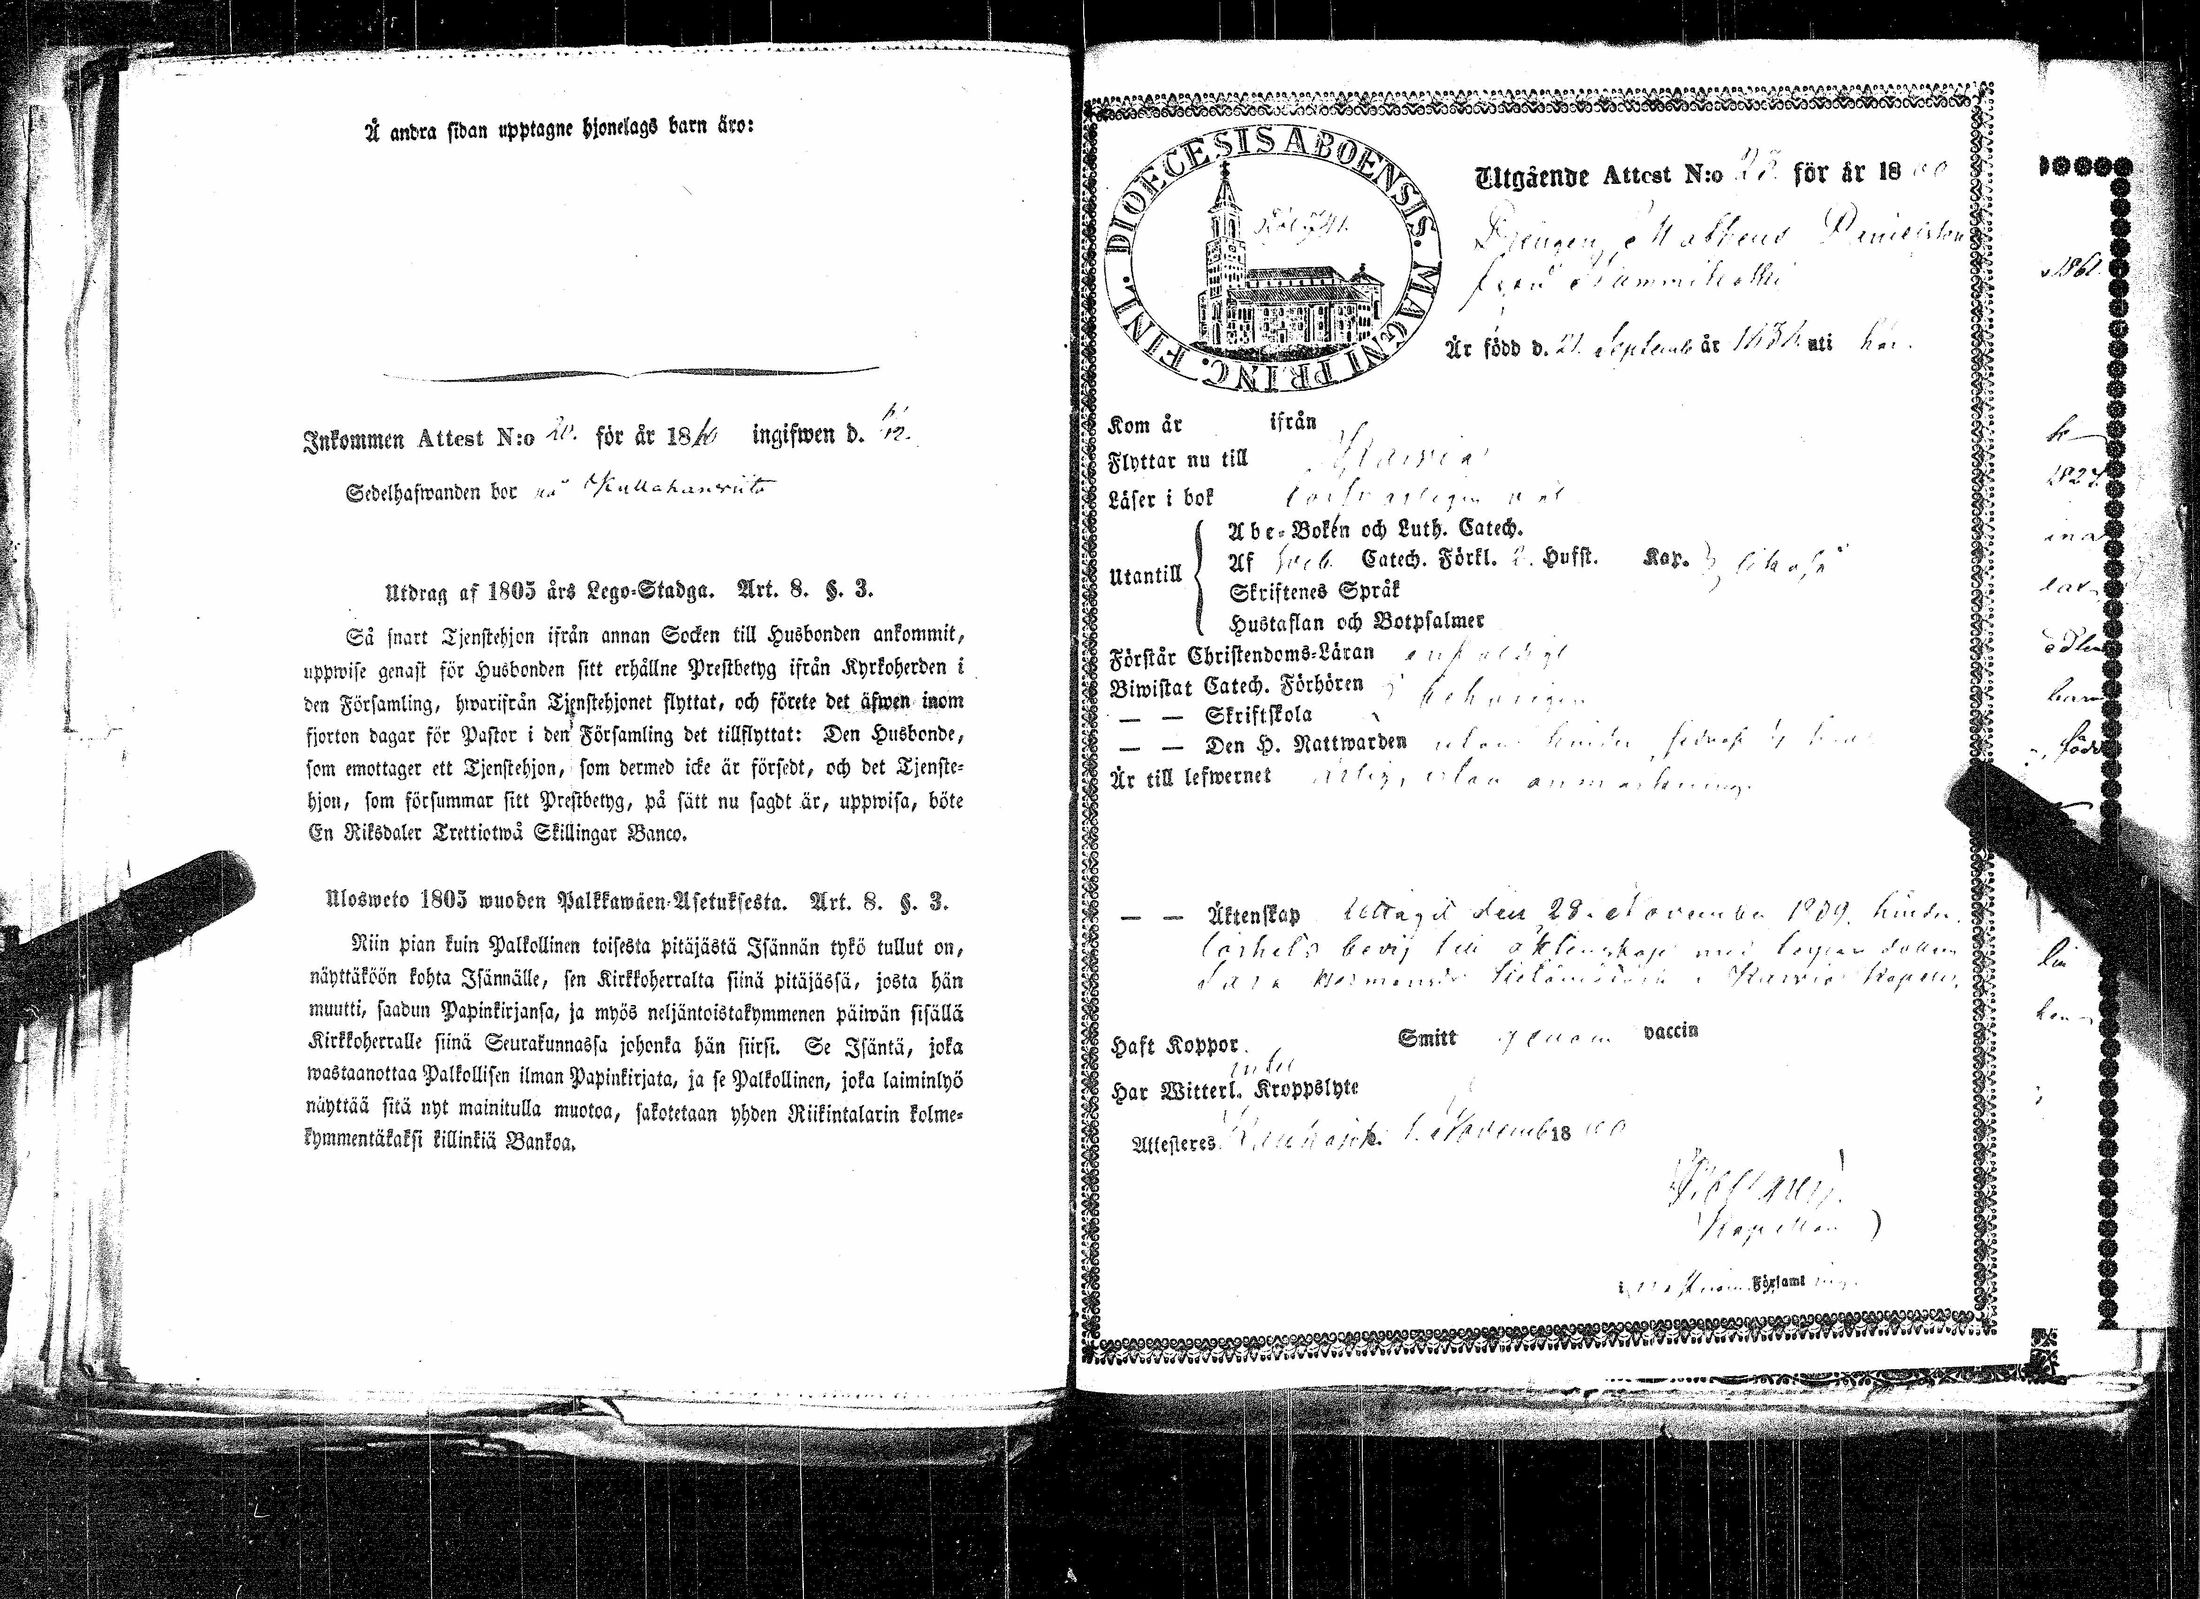 Å andra sidan upptagne hjonelags barn äro:
Inkommen Attest N:o 20. för år 1860 ingifwen d. 12.
Sedelhafwanden bor på Kullahanwiita
Utdrag af 1805 års Lego-Stadga. Art. 8. §. 3.
Så snart Tjenstehjon ifrån annan Socken till Husbonden ankommit,
uppwise genast för Husbonden sitt erhållne Prestbetyg ifrån Kyrkoherden i
den Församling, hwarifrån Tjenstehjonet flyttat, och förete det äfwen inom
fjorton dagar för Pastor i den Församling det tillflyttat: Den Husbonde,
som emottager ett Tjenstehjon, som dermed icke är försedt, och det Tjenste-
hjon, som försummar sitt Prestbetyg, på sätt nu sagdt är, uppwisa, böte
En Riksdaler Trettiotwå Skillingar Banco.
Ulosweto 1805 wuoden Palkkawäen-Asetuksesta. Art. 8. §. 3.
Niin pian kuin Palkollinen toisesta pitäjästä Isännän tykö tullut on,
näyttäköön kohta Isännälle, sen Kirkkoherralta siinä pitäjässä, josta hän
muutti, saadun Papinkirjansa, ja myös neljäntoistakymmenen päiwän sisällä
Kirkkoherralle siinä Seurakunnassa johonka hän siirsi. Se Isäntä, joka
wastaanottaa Palkollisen ilman Papinkirjata, ja se Palkollinen, joka laiminlyö
näyttää sitä nyt mainitulla muotoa, sakotetaan yhden Riikintalarin kolme-
kymmentäkaksi killinkiä Bankoa.
DIOECESIS ABOENSIS. MAGNI PRINC. FINL.
Utgående Attest N:o 25. för år 1860
Drengen Matheus Danielsson
från
Är född d. 21. Septemb år 1834. uti här.
Kom år ifrån
Flyttar nu till Karvia
Läser i bok försvarligen väl
Utantill
Abe-Boken och Luth. Catech.
Af Sveb. Catech. Förkl. 2. Hufst. Kap. likaså
Skriftenes Språk
Hustaflan och Botpsalmer
Förstår Christendoms-Läran enfaldigt
Biwistat Catech. Förhören behörigen
— — Skriftskola
— — Den H. Nattwarden utan hinder
Är till lefwernet ärlig, utan anmärkning.
— — Äktenskap uttagit den 28. November 1859. hinder-
löshets bevis till äktenskap med
Sara Hermansdr i Karvia Kapell.
Haft Koppor Smitt genom vaccin
Har Witterl. Kroppslyte
Attesteres 1. Novemb 1860
Kapellan
i Församl
1861
1827
född